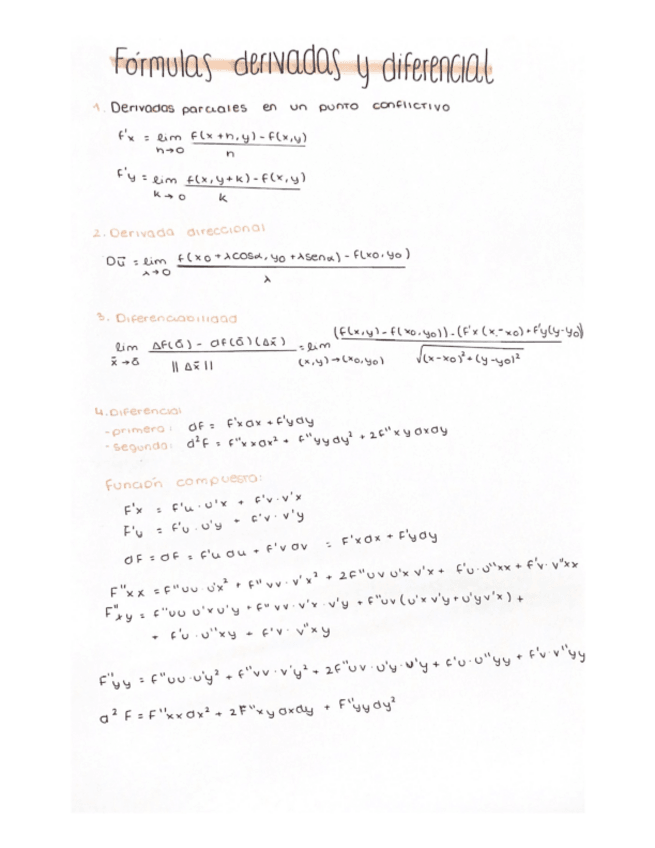 Fórmulas derivadas y diferencial
1. Derivadas parciales en un punto conflictivo
f'x = lim h→0 f(x+h,y)-f(x,y) / h
f'y = lim k→0 f(x,y+k)-f(x,y) / k
2. Derivada direccional
Dū = lim λ→0 f(x0+λcosα, y0+λsenα)-f(x0,y0) / λ
3. Diferenciabilidad
lim x̄→ā Δf(ā)-df(ā)(Δx̄) / ||Δx̄|| = lim (x,y)→(x0,y0) (f(x,y)-f(x0,y0))-(f'x(x-x0)+f'y(y-y0) / √(x-x0)²+(y-y0)²
4. Diferencial
-primera: df = f'xdx + f'ydy
-segunda: d²f = f''xxdx² + f''yydy² + 2f''xydxdy
Función compuesta:
F'x = f'u·u'x + f'v·v'x
F'y = f'u·u'y + f'v·v'y
dF = df = f'udu + f'vdv = F'xdx + F'ydy
F''xx = f''uu·u'x² + f''vv·v'x² + 2f''uv u'x v'x + f'u·u''xx + f'v·v''xx
F''xy = f''uu u'x u'y + f''vv·v'x·v'y + f''uv(u'x v'y + u'y v'x) +
+ f'u·u''xy + f'v·v''xy
F''yy = f''uu·u'y² + f''vv·v'y² + 2f''uv·u'y·v'y + f'u·u''yy + f'v·v''yy
d²F = F''xxdx² + 2F''xydxdy + F''yydy²